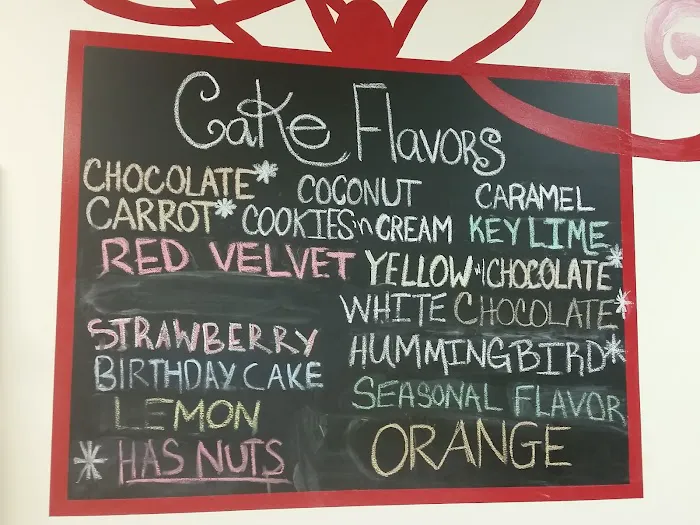 Cake Flavors
CHOCOLATE* COCONUT CARAMEL
CARROT* COOKIES 'n CREAM KEY LIME
RED VELVET YELLOW w/ CHOCOLATE*
WHITE CHOCOLATE*
STRAWBERRY HUMMINGBIRD*
BIRTHDAY CAKE SEASONAL FLAVOR
LEMON ORANGE
* HAS NUTS